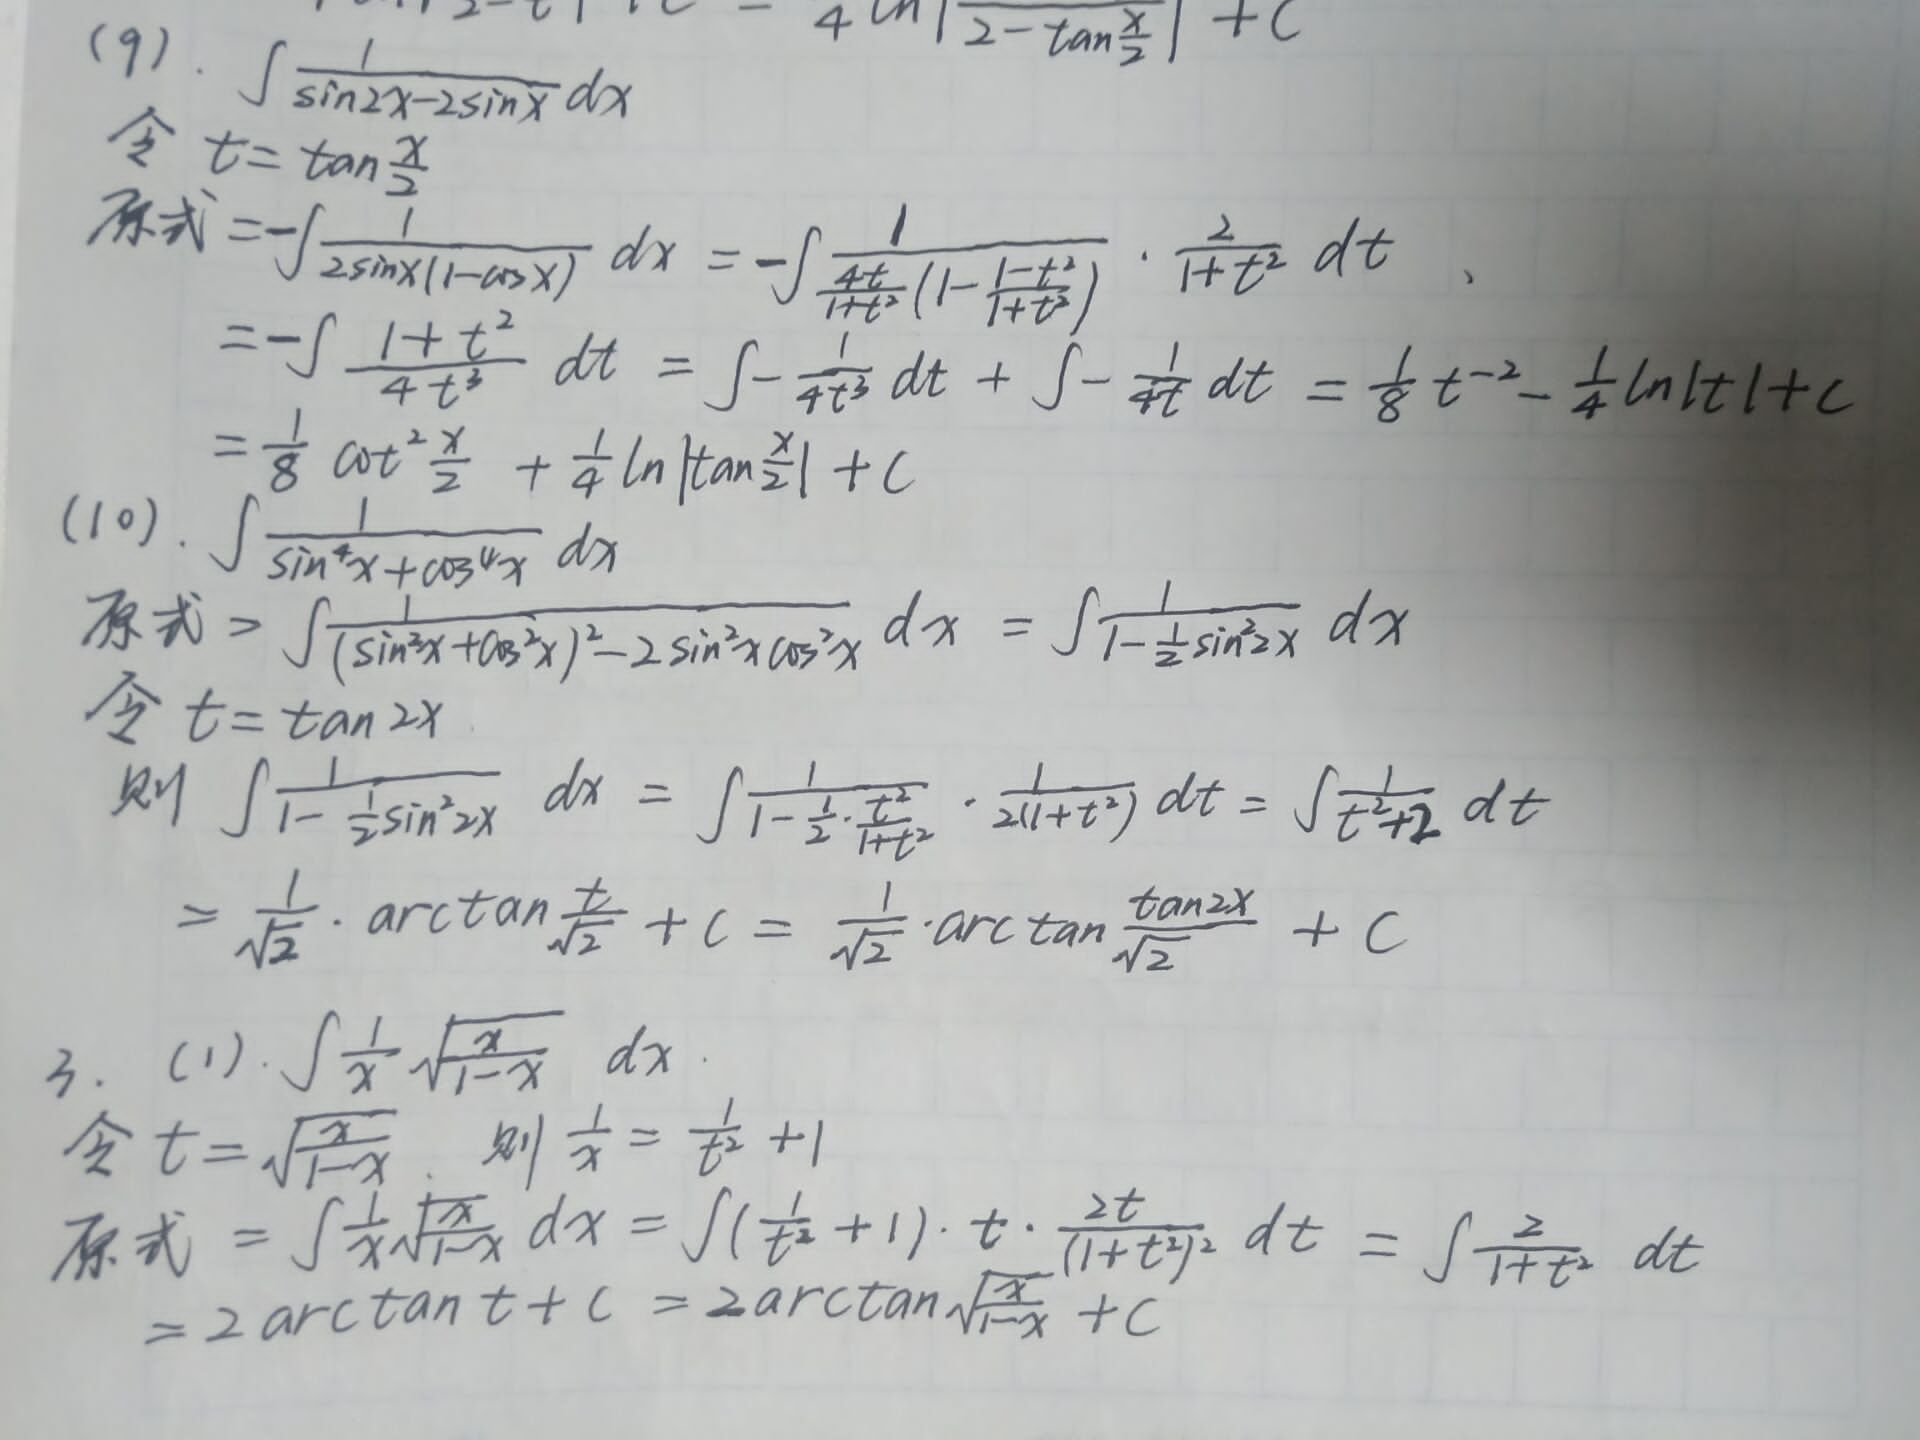 4 ln| / 2-tan x/2 | + C
(9). ∫ 1/(sin2x-2sinx) dx
令 t = tan x/2
原式 = -∫ 1/(2sinx(1-cosx)) dx = -∫ 1/(4t/(1+t²) (1- (1-t²)/(1+t²))) · 2/(1+t²) dt
= -∫ (1+t²)/(4t³) dt = ∫ - 1/(4t³) dt + ∫ - 1/(4t) dt = 1/8 t⁻² - 1/4 ln|t| + C
= 1/8 cot² x/2 + 1/4 ln|tan x/2| + C
(10). ∫ 1/(sin⁴x+cos⁴x) dx
原式 = ∫ 1/((sin²x+cos²x)²-2sin²xcos²x) dx = ∫ 1/(1- 1/2 sin²2x) dx
令 t = tan2x
则 ∫ 1/(1- 1/2 sin²2x) dx = ∫ 1/(1- 1/2 · t²/(1+t²)) · 1/(2(1+t²)) dt = ∫ 1/(t²+2) dt
= 1/√2 · arctan t/√2 + C = 1/√2 · arctan tan2x/√2 + C
3. (1). ∫ 1/x √(x/(1-x)) dx.
令 t = √(x/(1-x)). 则 1/x = 1/t² + 1
原式 = ∫ 1/x √(x/(1-x)) dx = ∫ (1/t² + 1) · t · 2t/(1+t²)² dt = ∫ 2/(1+t²) dt
= 2arctan t + C = 2arctan √(x/(1-x)) + C